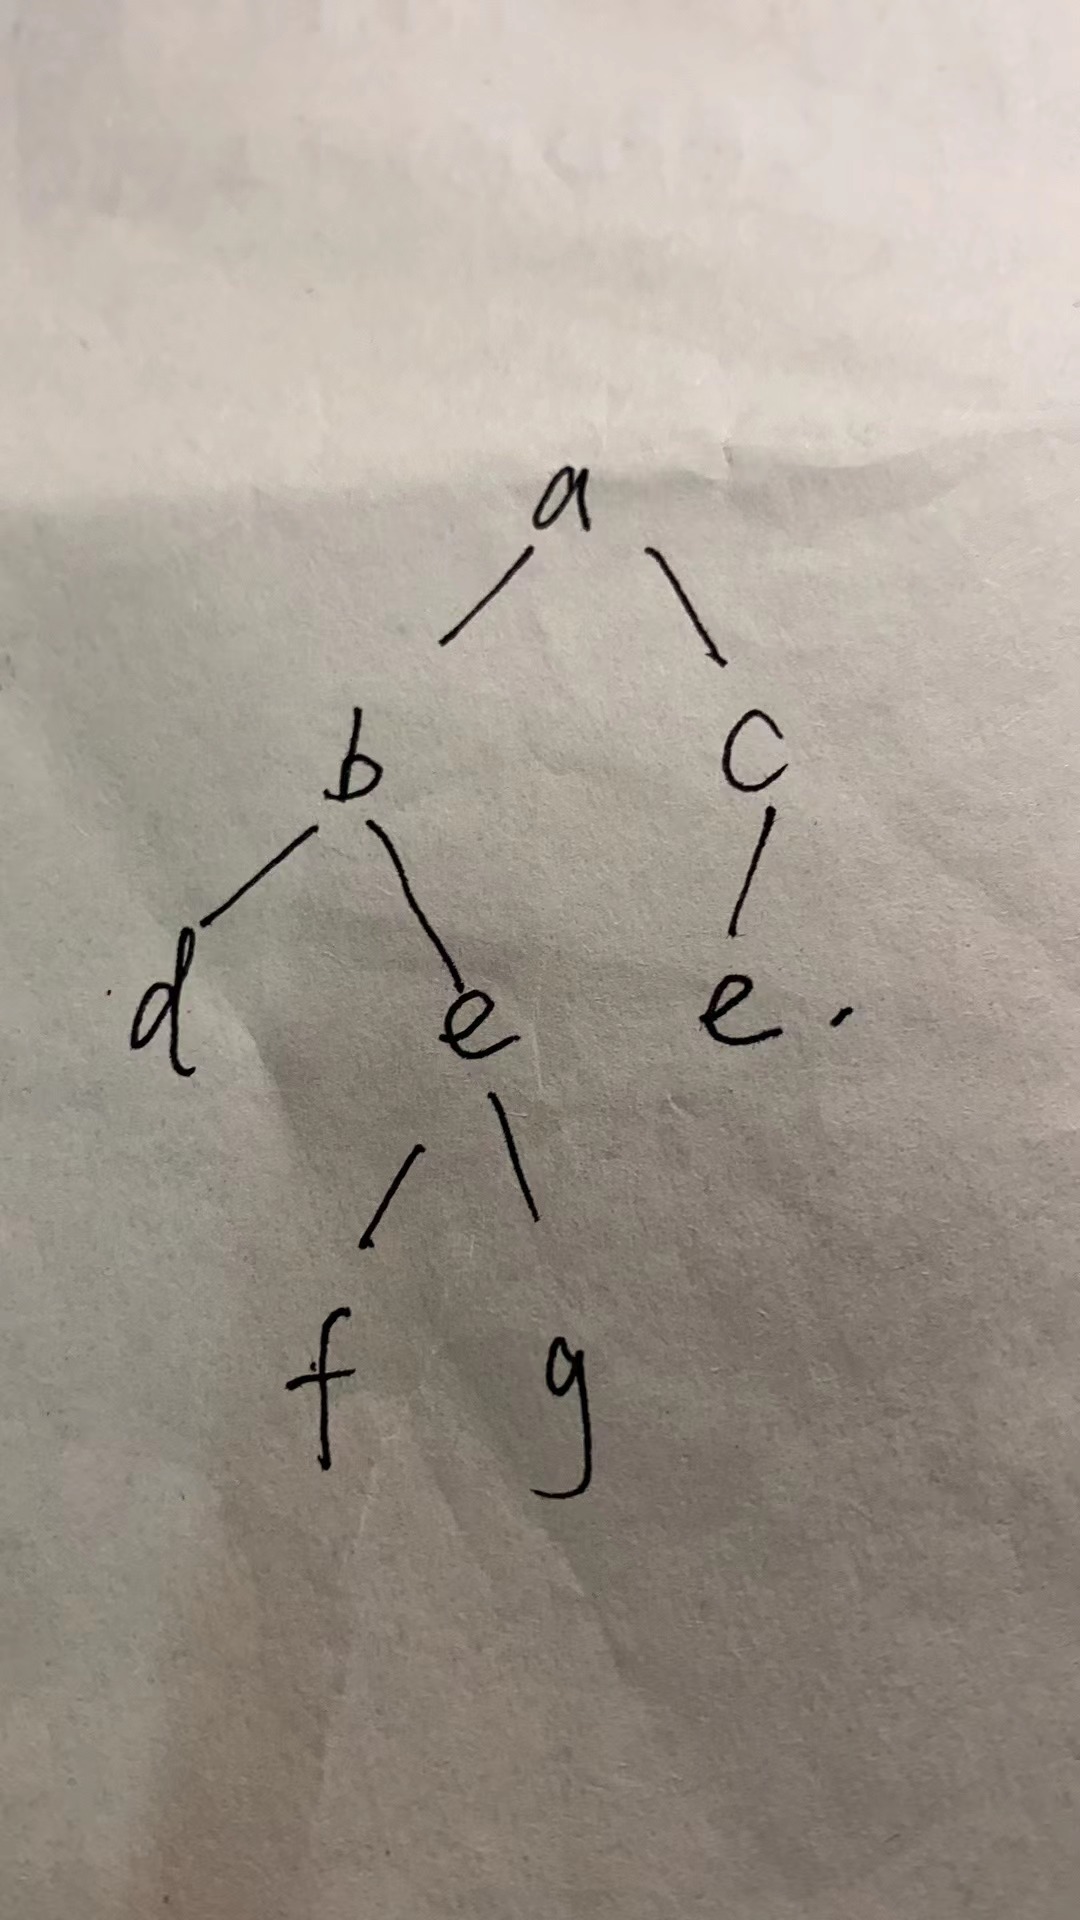 a
b c
d e e.
f g